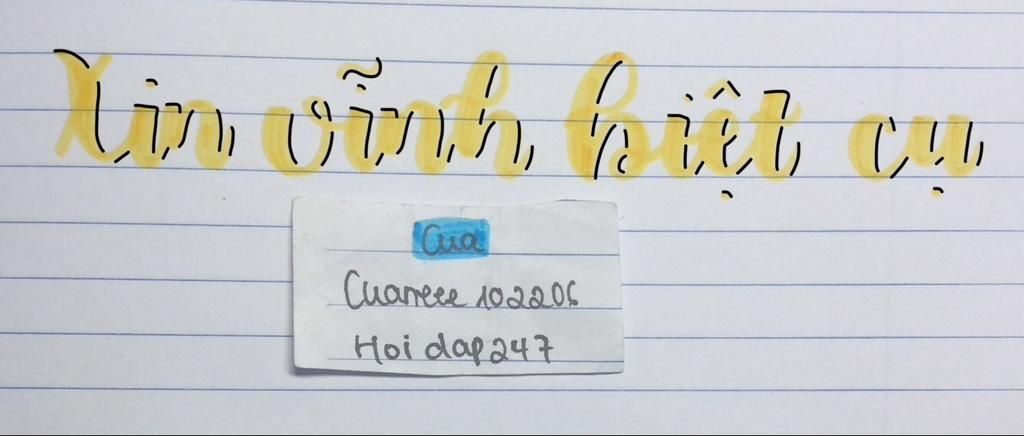 Xin vĩnh biệt cụ
Cua
Cuareee 102206
Hoi dap 247